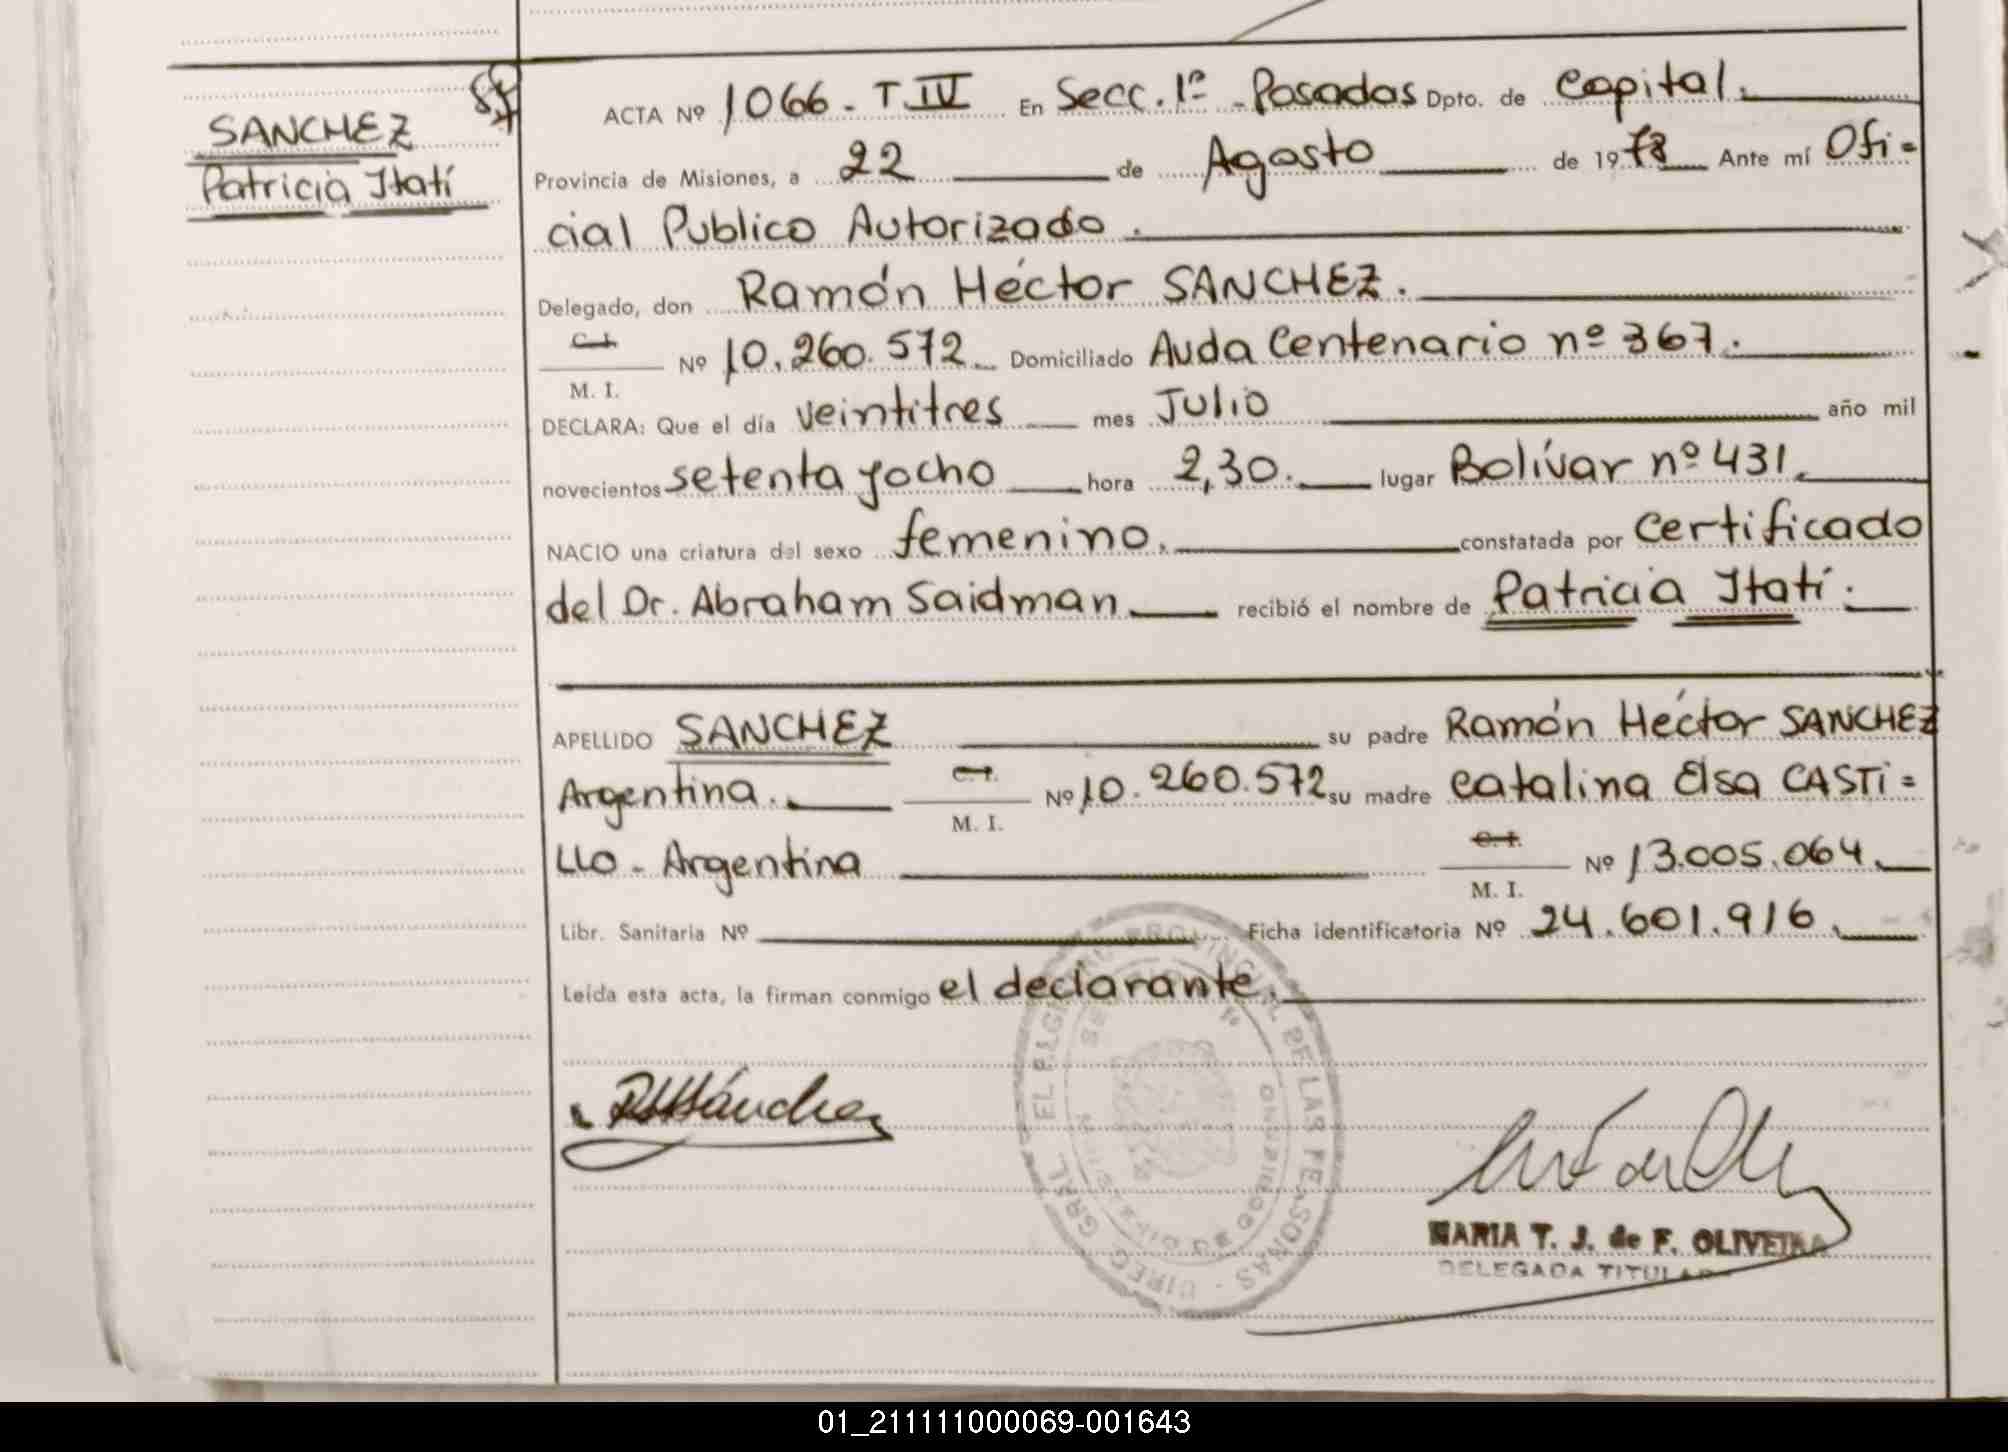 SANCHEZ
Patricia Itatí
ACTA Nº 1066 - T.IV En Secc. 1ª - Posadas Dpto. de Capital.
Provincia de Misiones, a 22 de Agosto de 1978 Ante mí Ofi=
cial Publico Autorizado.
Delegado, don Ramón Héctor SANCHEZ.
C.I.
M. I. Nº 10.260.572 Domiciliado Avda Centenario nº 367.
DECLARA: Que el día veintitres mes Julio año mil
novecientos setenta y ocho hora 2,30. lugar Bolívar nº 431.
NACIO una criatura del sexo femenino. constatada por Certificado
del Dr. Abraham Saidman recibió el nombre de Patricia Itatí.
APELLIDO SANCHEZ su padre Ramón Héctor SANCHEZ
Argentina. C.I. M. I. Nº 10.260.572 su madre Catalina Elsa CASTI=
LLO - Argentina C.I. M. I. Nº 13.005.064.
Libr. Sanitaria Nº Ficha identificatoria Nº 24.601.916.
Leída esta acta, la firman conmigo el declarante.
RHSánchez
DIREC. GRAL. PROVINCIAL DE LAS PERSONAS
MARIA T. J. de F. OLIVEIRA
DELEGADA TITULAR
01_211111000069-001643